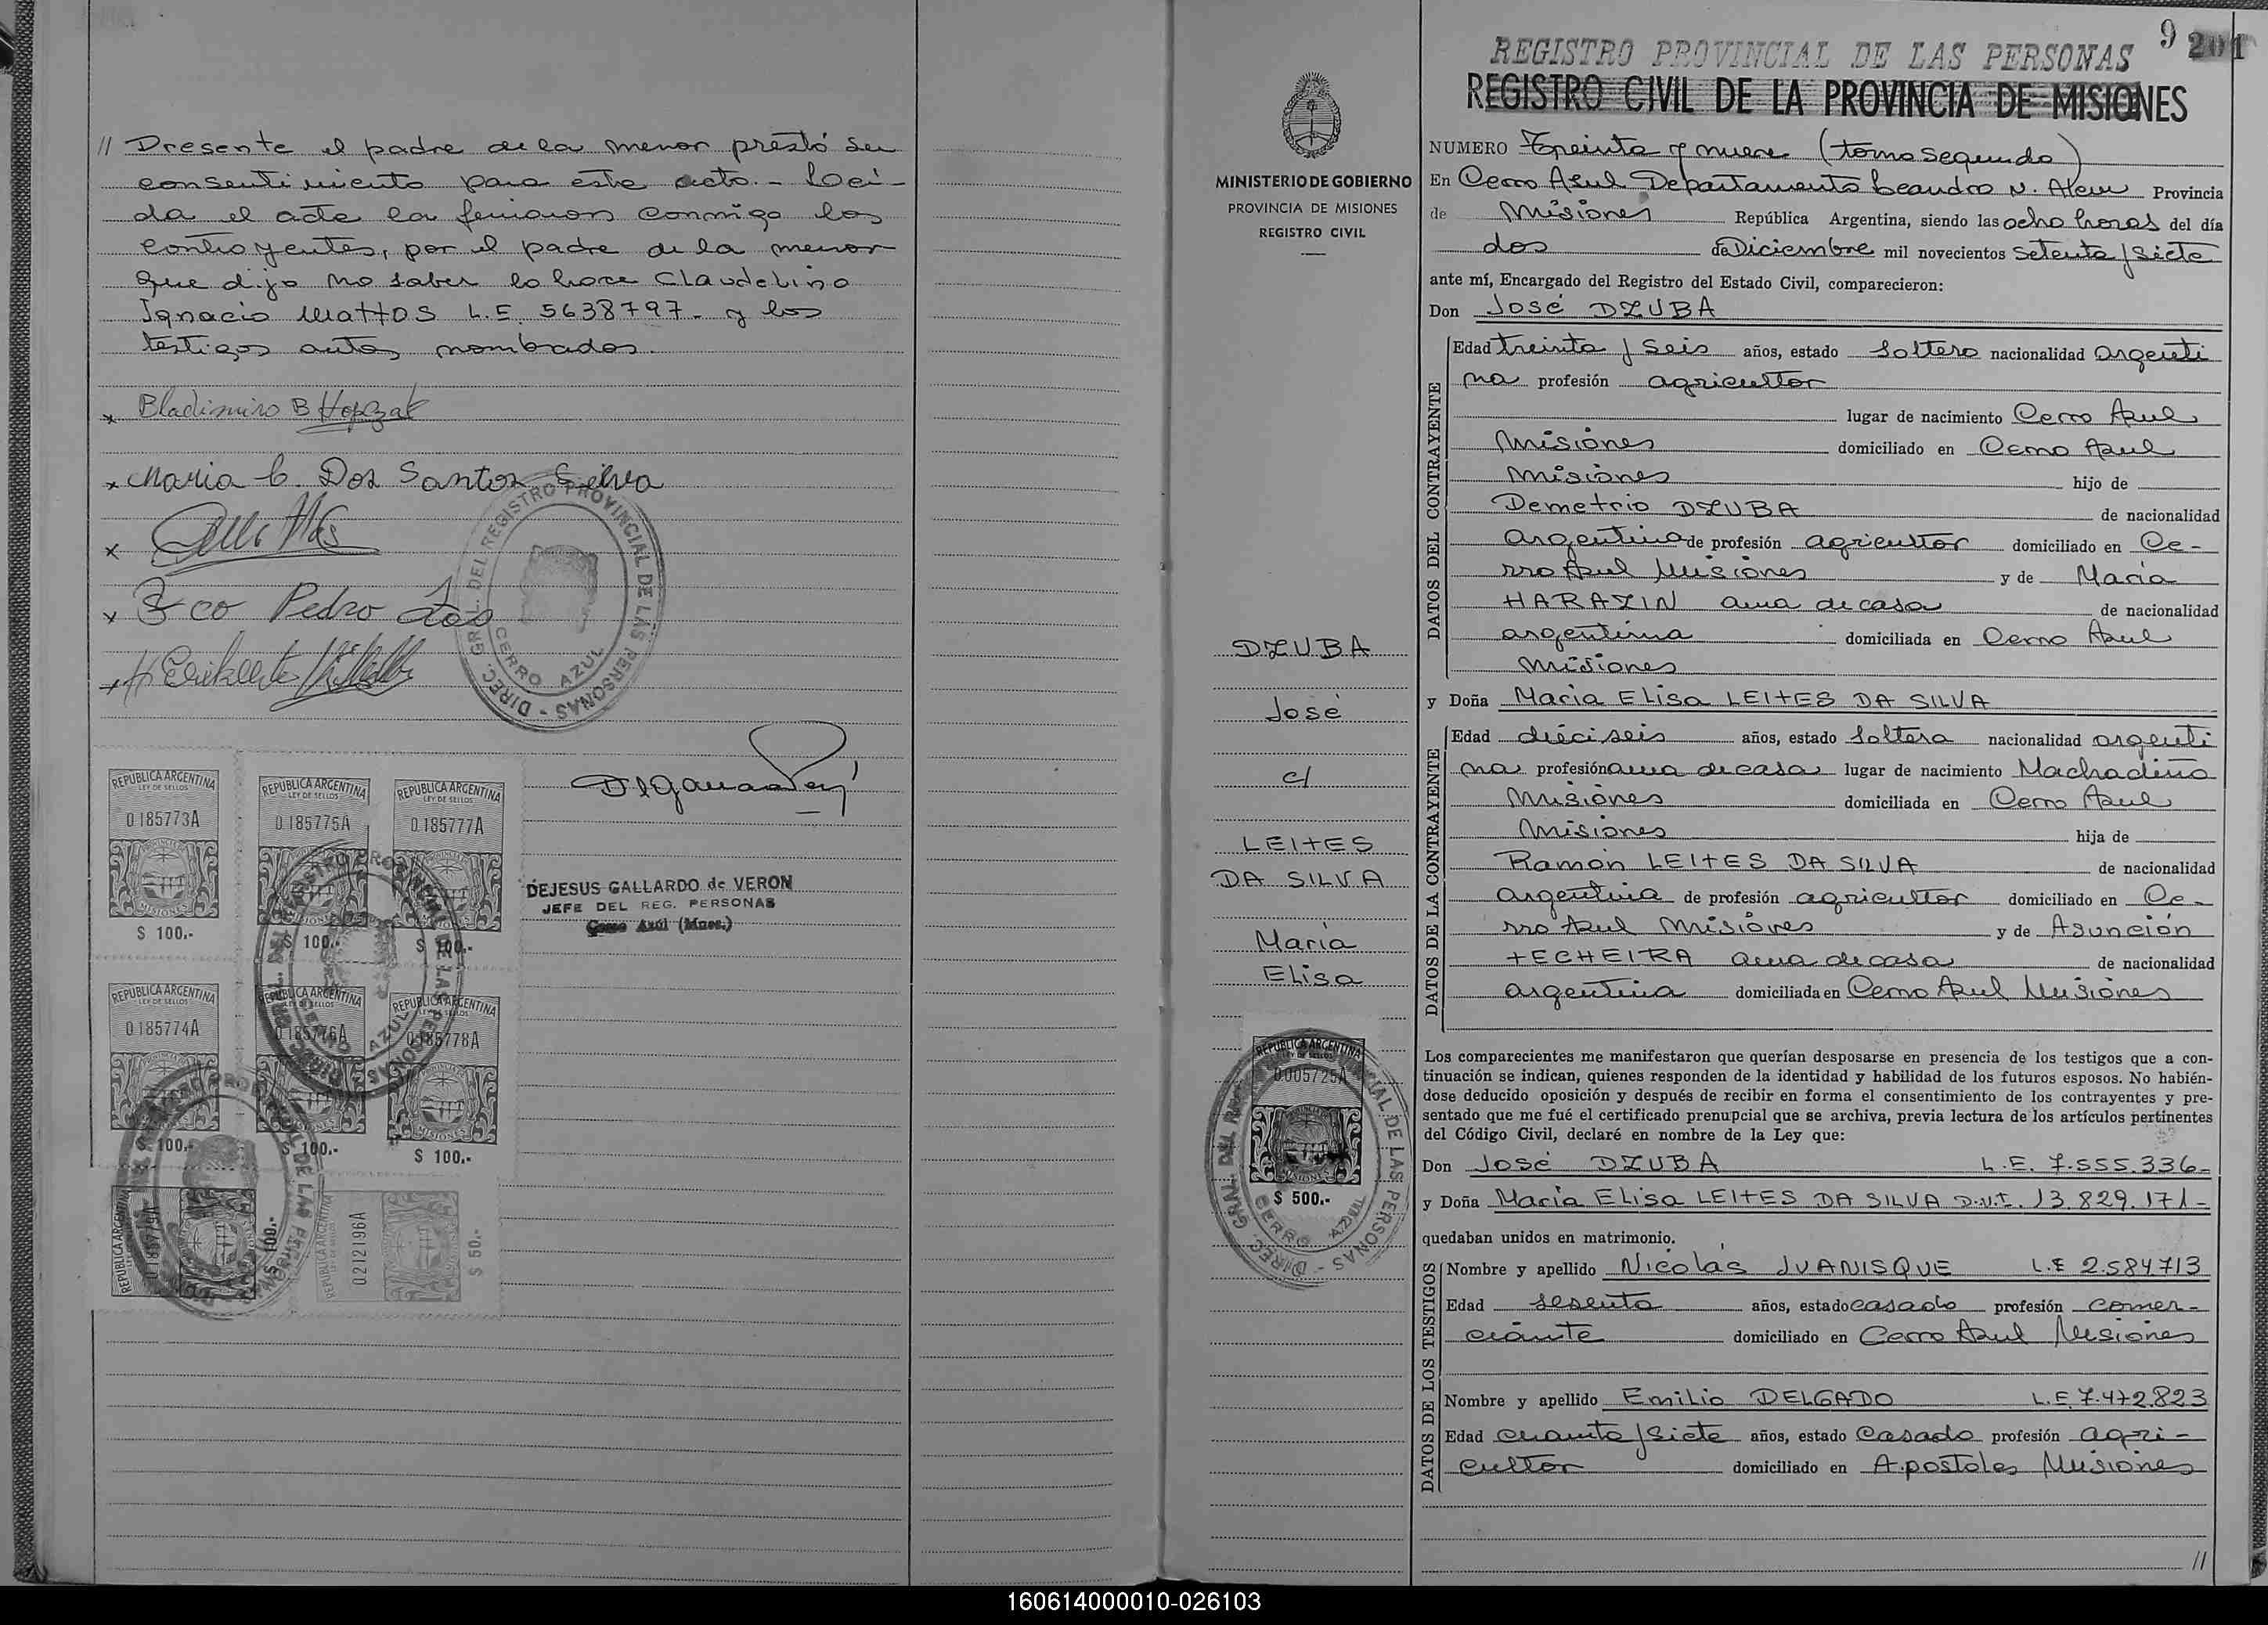 // Presente el padre de la menor prestó su
consentimiento para este acto.- Leí-
da el acta la firmaron conmigo los
contrayentes, por el padre de la menor
que dijo no saber lo hace Claudelino
Ignacio MattOS L.E. 5638797.- y los
testigos antes nombrados.
x Bladimiro B Hopzat
x Maria C. Dos Santos Silva
x
x Fco Pedro dos
x
DIREC. GRAL. DEL REGISTRO PROVINCIAL DE LAS PERSONAS -
CERRO AZUL
REPUBLICA ARGENTINA
LEY DE SELLOS
0185773A
MISIONES
$ 100.-
REPUBLICA ARGENTINA
LEY DE SELLOS
0185775A
$ 100.-
REPUBLICA ARGENTINA
LEY DE SELLOS
0185777A
$ 100.-
DEJESUS GALLARDO de VERON
JEFE DEL REG. PERSONAS
Cerro Azúl (Mnes.)
REPUBLICA ARGENTINA
LEY DE SELLOS
0185774A
$ 100.-
REPUBLICA ARGENTINA
0185776A
$ 100.-
REPUBLICA ARGENTINA
LEY DE SELLOS
0185778A
MISIONES
$ 100.-
REPUBLICA ARGENTINA
0185779A
$ 100.-
REPUBLICA ARGENTINA
0212196A
$ 50.-
9 201
REGISTRO PROVINCIAL DE LAS PERSONAS
REGISTRO CIVIL DE LA PROVINCIA DE MISIONES
MINISTERIO DE GOBIERNO
PROVINCIA DE MISIONES
REGISTRO CIVIL
DZUBA
José
c/
LEITES
DA SILVA
María
Elisa
REPUBLICA ARGENTINA
LEY DE SELLOS
0005725A
MISIONES
$ 500.-
DIREC. GRAL. DEL REGISTRO PROVINCIAL DE LAS PERSONAS -
CERRO AZUL
NUMERO Treinta y nueve (tomo segundo)
En Cerro Azul Departamento Leandro N. Alem Provincia
de Misiones República Argentina, siendo las ocho horas del día
dos de Diciembre mil novecientos setenta/siete
ante mí, Encargado del Registro del Estado Civil, comparecieron:
Don José DZUBA
DATOS DEL CONTRAYENTE
Edad treinta / seis años, estado soltero nacionalidad argenti
na profesión agricultor
lugar de nacimiento Cerro Azul
Misiones domiciliado en Cerro Azul
Misiones hijo de
Demetrio DZUBA de nacionalidad
argentina de profesión agricultor domiciliado en Ce-
rro Azul Misiones y de María
HARAZIN ama de casa de nacionalidad
argentina domiciliada en Cerro Azul
Misiones
y Doña María Elisa LEITES DA SILVA
DATOS DE LA CONTRAYENTE
Edad dieciseis años, estado soltera nacionalidad argenti
na profesión ama de casa lugar de nacimiento Machadiño
Misiones domiciliada en Cerro Azul
Misiones hija de
Ramón LEITES DA SILVA de nacionalidad
argentina de profesión agricultor domiciliado en Ce-
rro Azul Misiones y de Asunción
TECHEIRA ama de casa de nacionalidad
argentina domiciliada en Cerro Azul Misiones
Los comparecientes me manifestaron que querían desposarse en presencia de los testigos que a con-
tinuación se indican, quienes responden de la identidad y habilidad de los futuros esposos. No habién-
dose deducido oposición y después de recibir en forma el consentimiento de los contrayentes y pre-
sentado que me fué el certificado prenupcial que se archiva, previa lectura de los artículos pertinentes
del Código Civil, declaré en nombre de la Ley que:
Don José DZUBA L.E. 7.555.336-
y Doña María Elisa LEITES DA SILVA D.N.I. 13.829.171-
quedaban unidos en matrimonio.
DATOS DE LOS TESTIGOS
Nombre y apellido Nicolás JUANISQUE L.E 2.584713
Edad sesenta años, estado casado profesión comer-
ciante domiciliado en Cerro Azul Misiones
Nombre y apellido Emilio DELGADO L.E. 7.472.823
Edad cuarenta/siete años, estado casado profesión agri-
cultor domiciliado en Apostoles Misiones
//
160614000010-026103